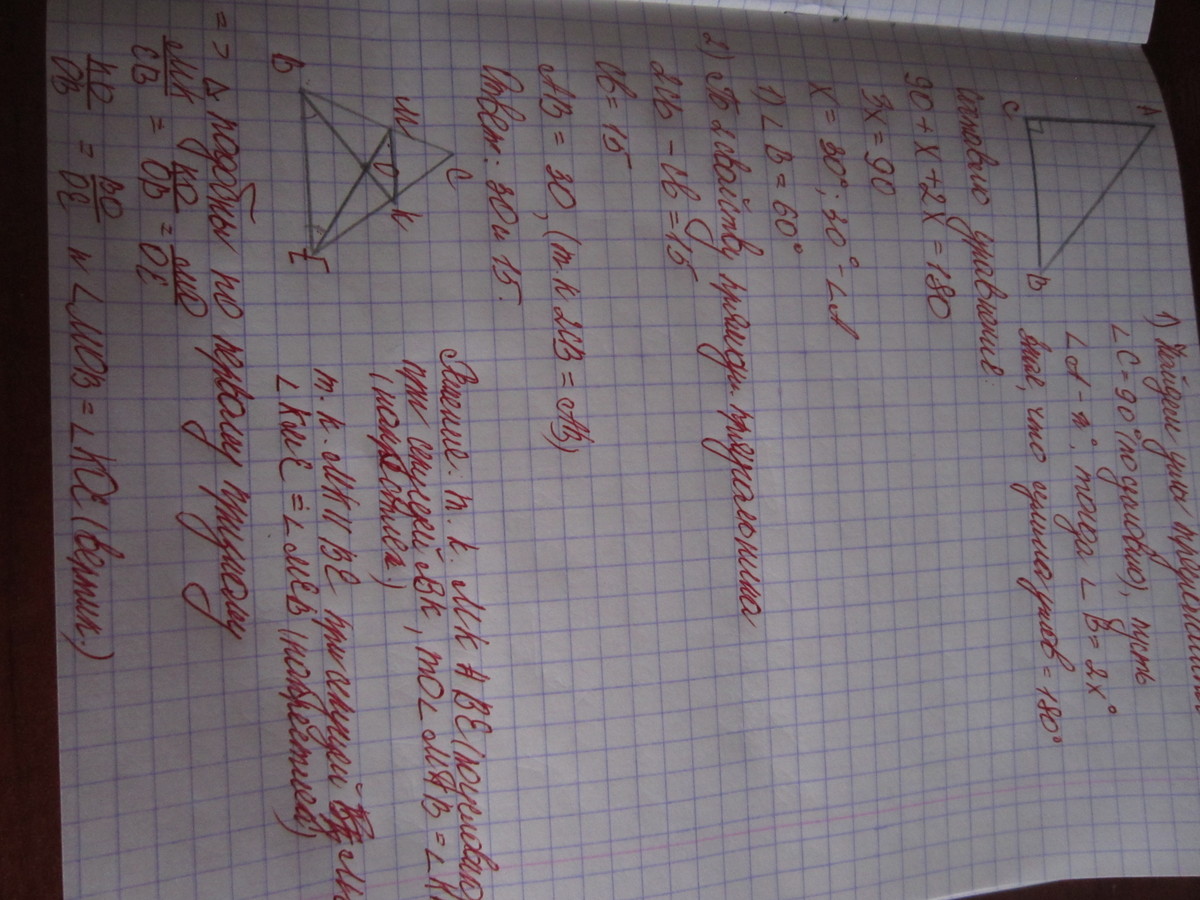 1) Найдём углы
∠C = 90° (по условию), пусть
∠A - x°, тогда ∠B = 2x°
Зная, что сумма углов = 180°
A
C
B
Составляю уравнение:
90 + x + 2x = 180
3x = 90
x = 30°; 30° - ∠A
1) ∠B = 60°
2) По свойству прямоуг. треугольника
2CB - CB = 15
CB = 15
AB = 30, (т.к 2CB = AB)
Ответ: 30 и 15.
C
M
K
O
B
E
Решение: т.к. MK || BE (по условию
при секущей BK, то ∠MKB = ∠K
(накрест лежа)
т.к. MK || BE при секущей
∠KME = ∠MEB (накрест лежа)
=> Δ подобны по первому признаку
MK/EB = KO/OB = MO/OE
KO/OB = BO/OE и ∠MOB = ∠KOE (вертик.)